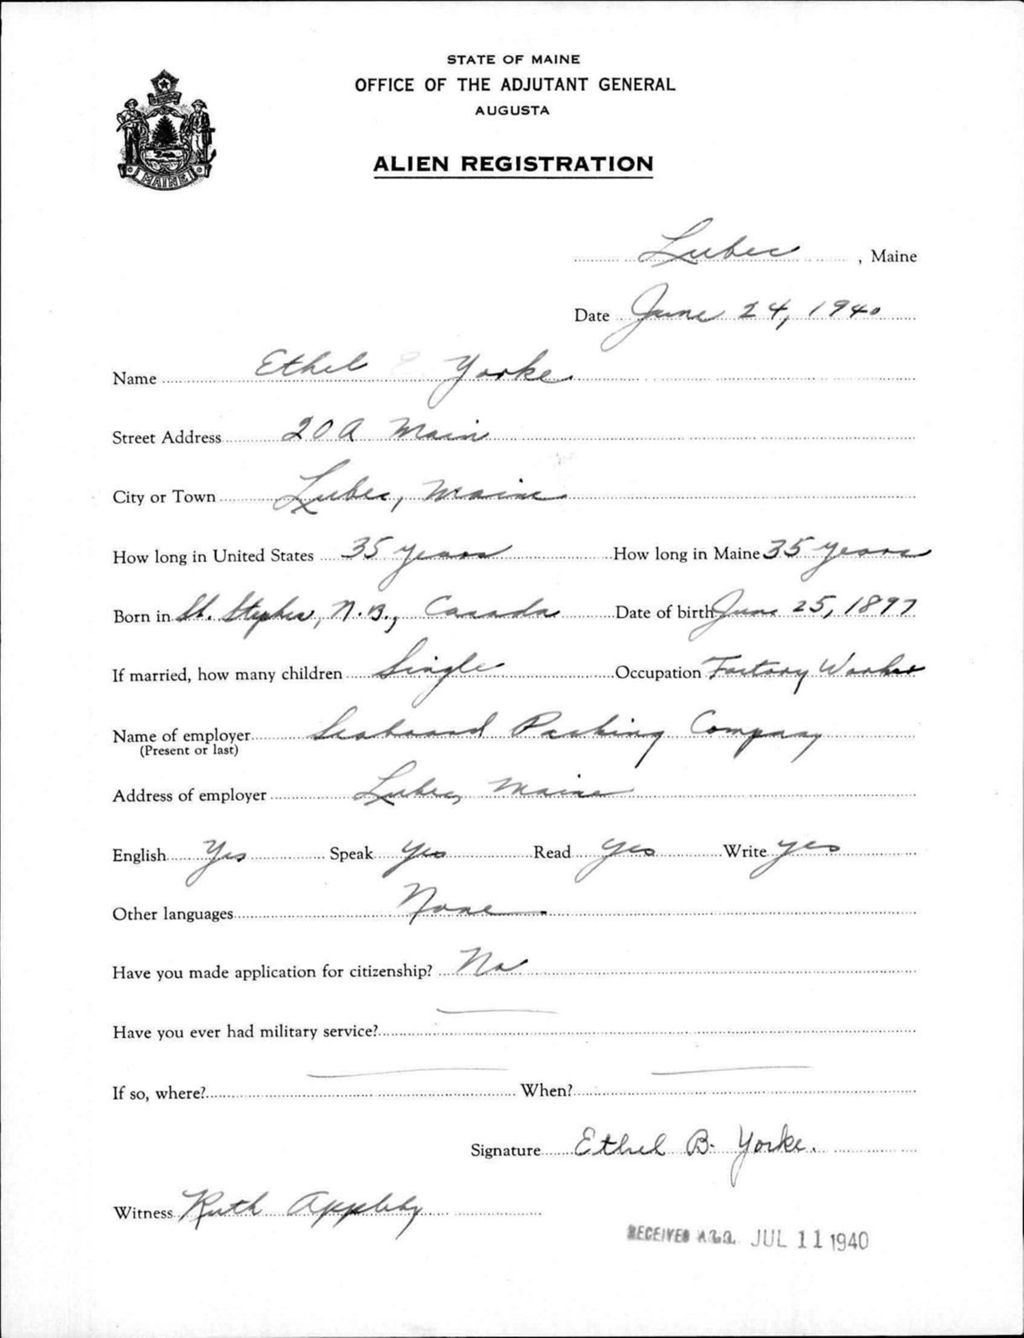 STATE OF MAINE
OFFICE OF THE ADJUTANT GENERAL
AUGUSTA
ALIEN REGISTRATION
MAINE
Lubec, Maine
Date June 24, 1940
Name Ethel Yorke
Street Address 20A Main
City or Town Lubec, Maine
How long in United States 35 years How long in Maine 35 years
Born in St. Stephen, N.B., Canada Date of birth June 25, 1897
If married, how many children Single Occupation Factory Worker
Name of employer Seaboard Packing Company
(Present or last)
Address of employer Lubec, Maine
English Yes Speak Yes Read Yes Write yes
Other languages None
Have you made application for citizenship? No
Have you ever had military service? —
If so, where? — When? —
Signature Ethel B. Yorke.
Witness Ruth Appleby
RECEIVED A.G.O. JUL 11 1940